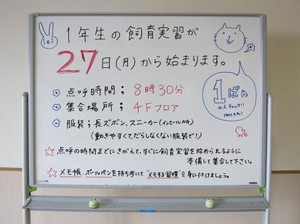 1年生の飼育実習が
27日(月)から始まります。
点呼時間:8時30分
集合場所:4Fフロア
服装:長ズボン、スニーカー(インヒールNG)
(動きやすくて、だらしなくない服装で!)
☆点呼の時間までにきがえて、すぐに飼育実習を始められるように
準備して集合して下さい。
☆メモ帳、ボールペンを持ち歩いて"メモする習慣"を身に付けましょう。
1ぱん